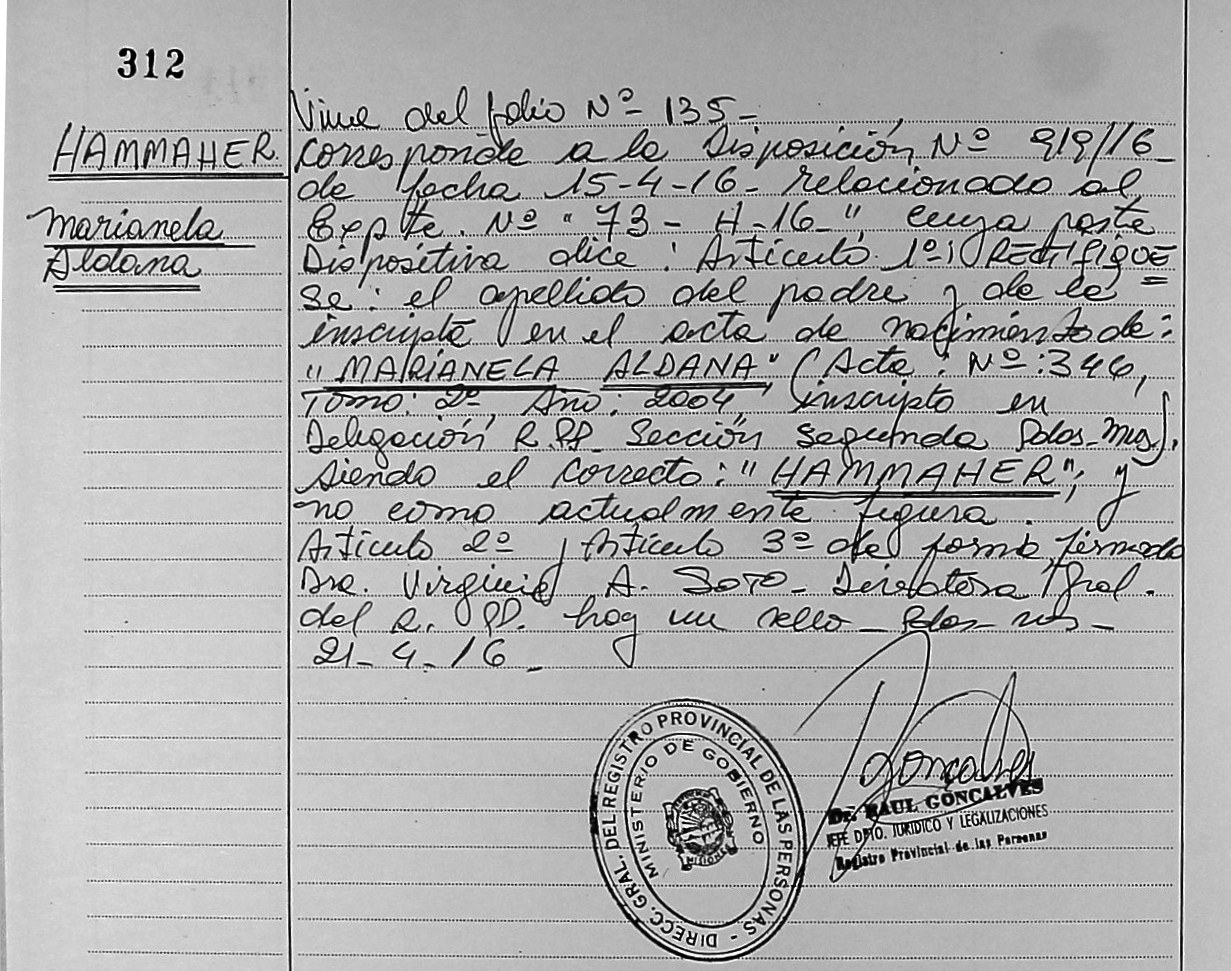 312
HAMMAHER
Marianela
Aldana
Viene del folio Nº 135_
Corresponde a la Disposición Nº 919/16_
de fecha 15-4-16_ relacionado al
Expte. Nº "73-H-16", cuya parte
Dispositiva dice: Artículo 1º: RECTIFIQUE
Se: el apellido del padre y de la
inscripta en el acta de nacimiento de:
"MARIANELA ALDANA" (Acta: Nº: 346,
Tomo: 2º, Año: 2004, inscripto en
Delegación R.PP. Sección Segunda Pdas_Mns.),
siendo el correcto: "HAMMAHER"; y
no como actualmente figura.
Artículo 2º y Artículo 3º de forma, firmado
Dra. Virginia A. Soto_ Directora Gral.
del R. PP. hay un sello_ Pdas_ Mns_
21-4-16_
DIRECC. GRAL. DEL REGISTRO PROVINCIAL DE LAS PERSONAS -
MINISTERIO DE GOBIERNO
MISIONES
Dr. RAUL GONCALVES
JEFE DPTO. JURIDICO Y LEGALIZACIONES
Registro Provincial de las Personas